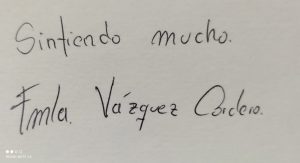 Sintiendo mucho.
Fmla. Vázquez Cordero.